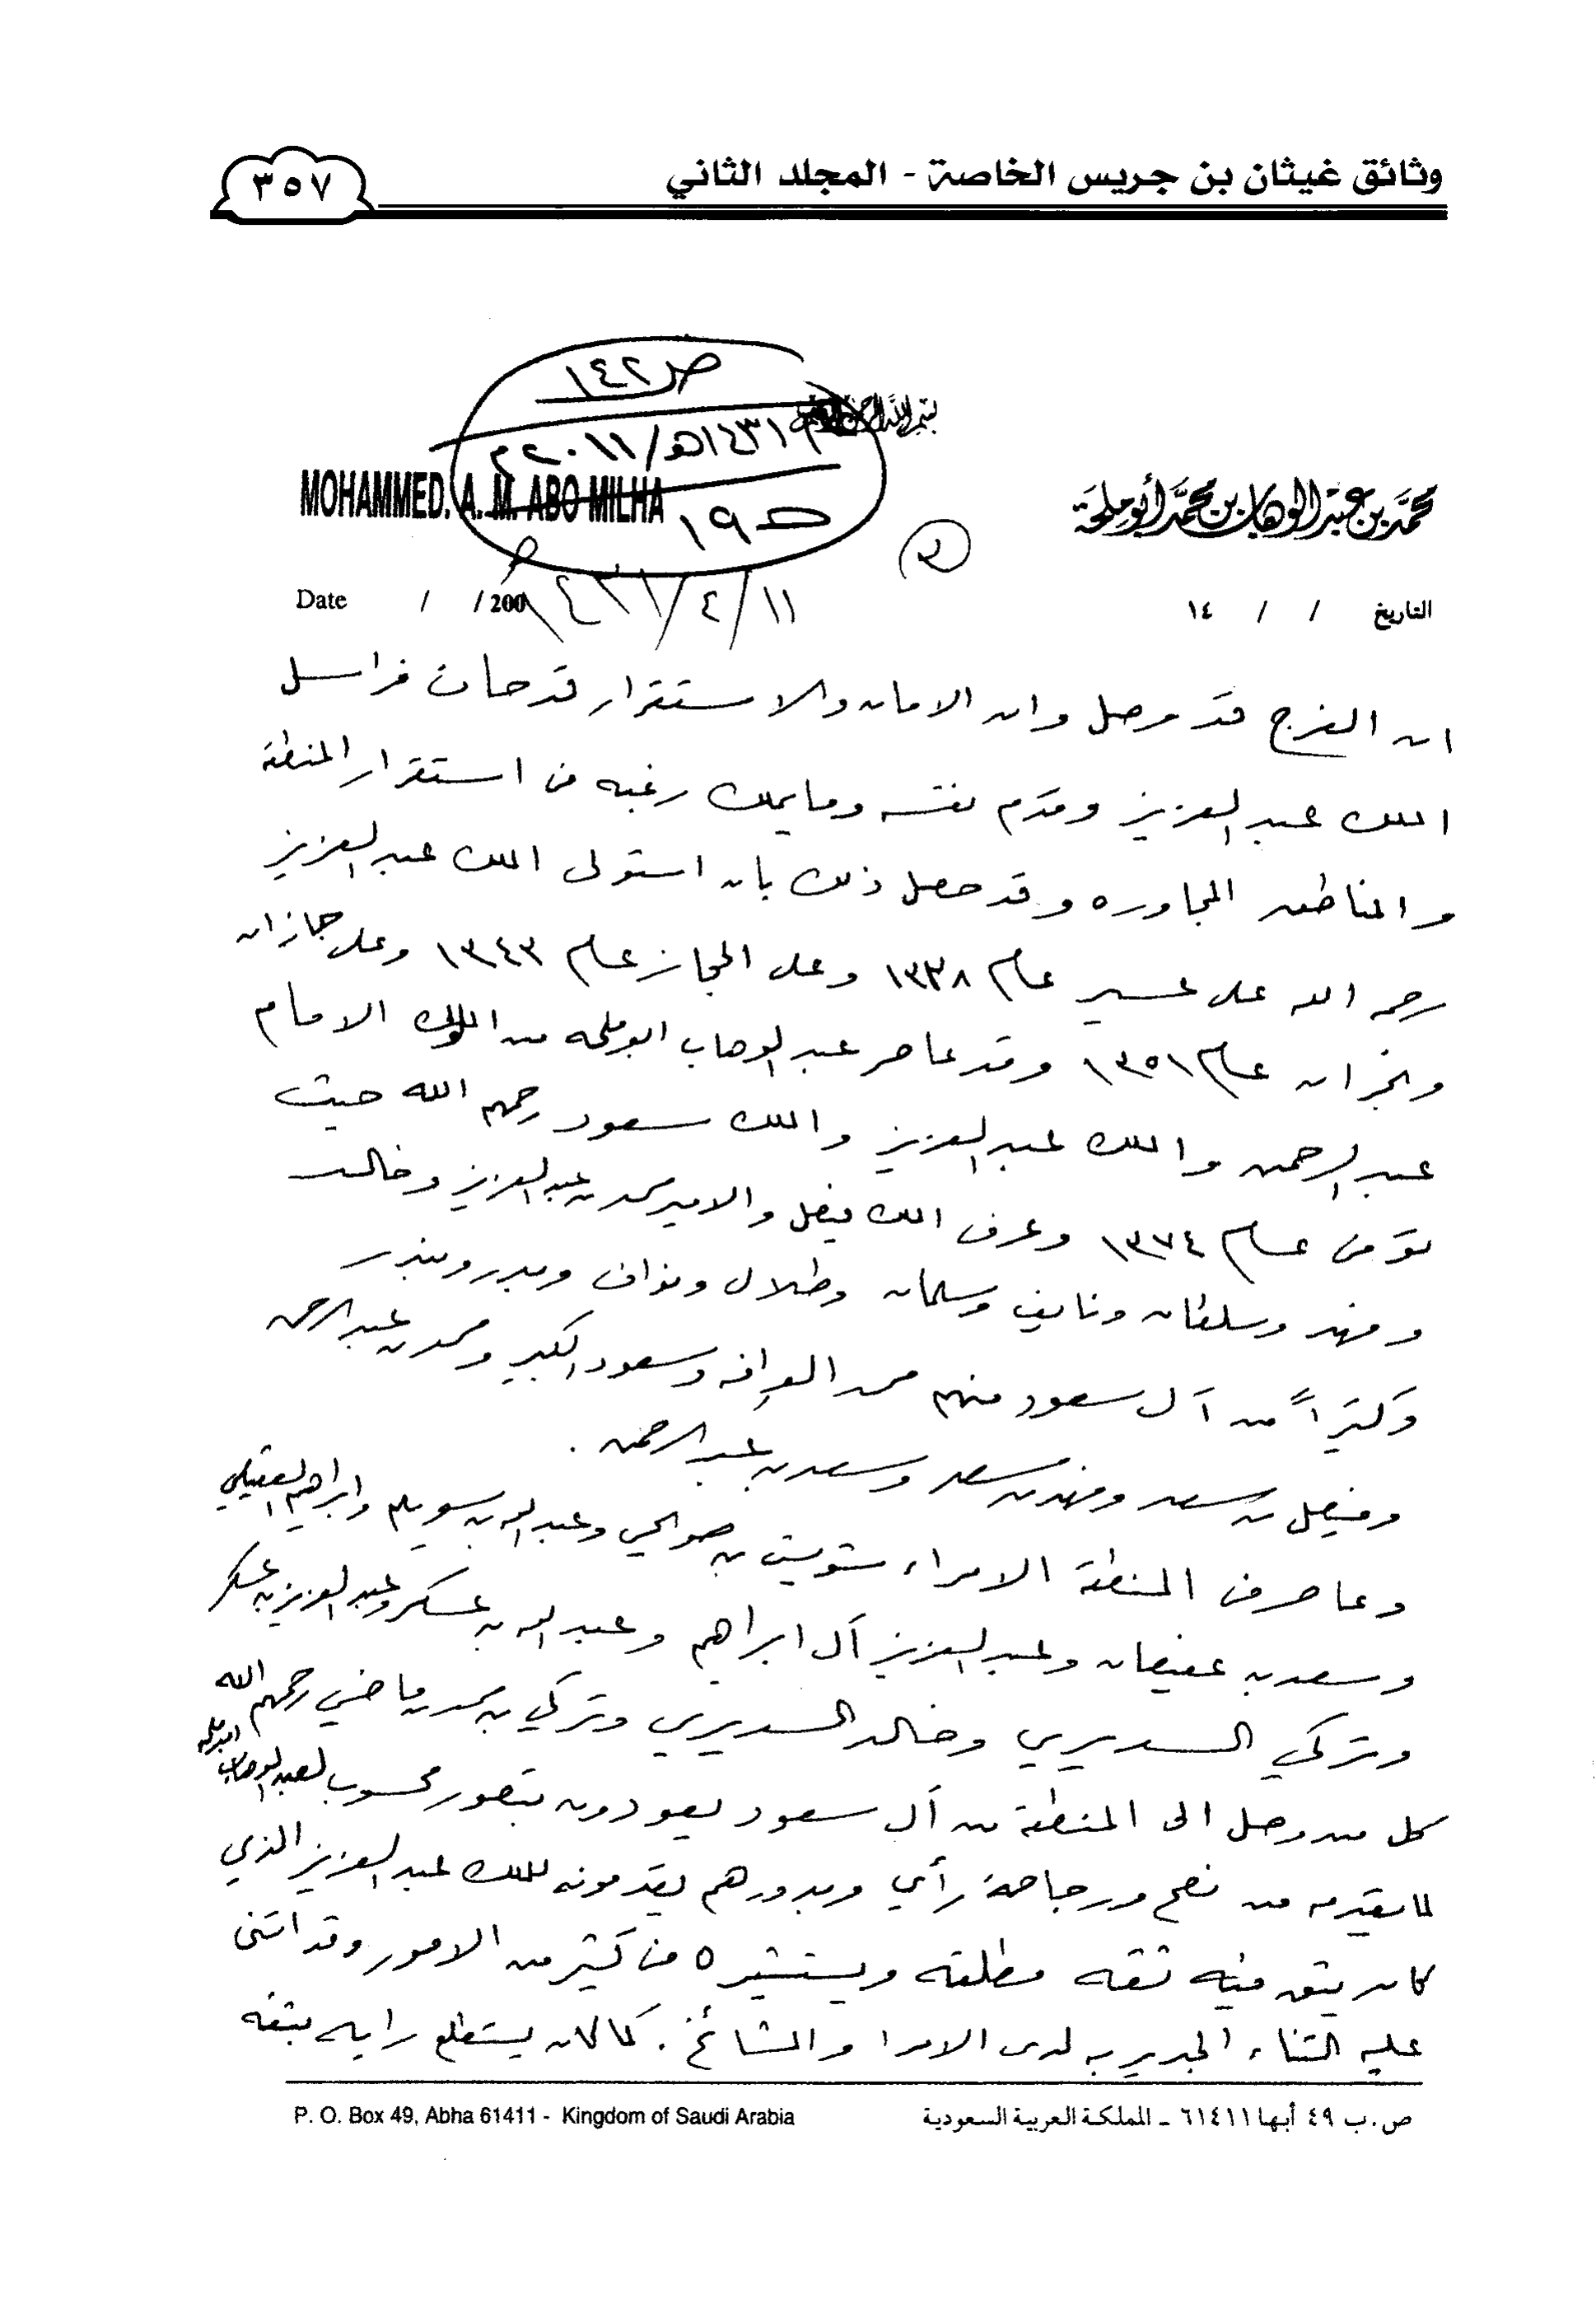 وثائق غيثان بن جريس الخاصة - المجلد الثاني
٣٥٧
ص ١٤٢
١٤٣١هـ/٢٠١١م
ص ١٩
بسم الله الرحمن الرحيم
MOHAMMED. A. M. ABO MILHA
محمد بن عبد الوهاب بن محمد أبو ملحة
Date / / 200
١١/٤/١٤٣١هـ
التاريخ / / ١٤
ان الفرج قد وصل وان الامان والاستقرار قد حان فراسل
الملك عبد العزيز وقدم نفسه وما يملك رغبه في استقرار المنطقة
والمناطق المجاوره وقد حصل ذلك بان استولى الملك عبد العزيز
رحمه الله على عسير عام ١٣٣٨ وعلى الحجاز عام ١٣٤٣ وعلى جازان
ونجران عام ١٣٥١ وقد عاصر عبد الوهاب ابو ملحه من الملوك الامام
عبد الرحمن والملك عبد العزيز والملك سعود رحمهم الله حيث
توفى عام ١٣٧٤ وعرف الملك فيصل والامير محمد بن عبد العزيز وخالد
وفهد وسلطان ونايف وسلمان وطلال ونواف وبدر وبندر
وكثيراً من آل سعود منهم محمد العرافه وسعود الكبير ومحمد بن عبد الرحمن
وفيصل بن سعد وفهد بن سعد وسعد بن عبد الرحمن .
وعاصر في المنطقة الامراء شويش بن ضويحي وعبد الله بن سويلم وابراهيم العقيلي
وسعد بن عفيصان وعبد العزيز آل ابراهيم وعبد الله بن عسكر وعبد العزيز بن عسكر
وتركي السديري وخالد السديري وتركي بن محمد بن ماضي رحمهم الله
كل من وصل الى المنطقة من آل سعود يعودون بتصور محسوب لعبد الوهاب ابو ملحه
لما يقدمه من نصح ورجاحة رأي وبدورهم يقدمونه للملك عبد العزيز الذي
كان يثق فيه ثقه مطلقه ويستشيره في كثير من الامور وقد اثنى
عليه الثناء الجدير به لدى الامرا والمشائخ . كما كان يستطلع رايه بثقه
P. O. Box 49, Abha 61411 - Kingdom of Saudi Arabia
ص.ب ٤٩ أبها ٦١٤١١ - المملكة العربية السعودية